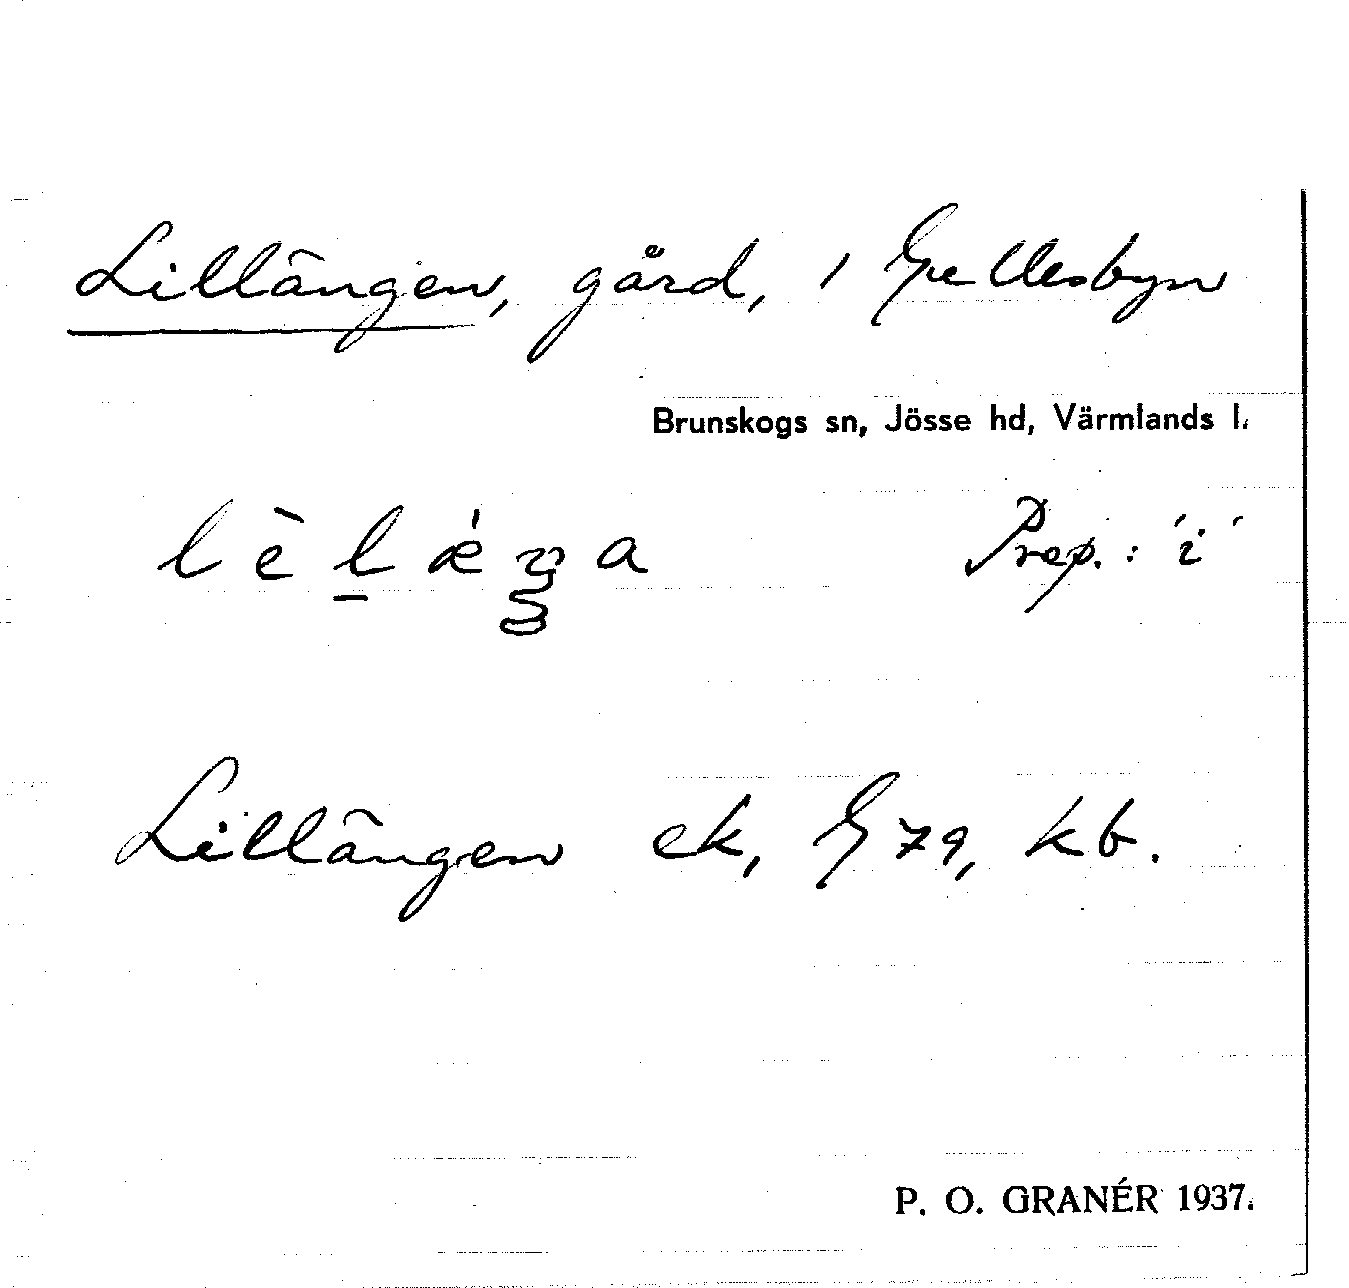 Lillängen, gård, i Gellesbyn
Brunskogs sn, Jösse hd, Värmlands l.
Prep.: 'i'
Lillängen ek, G 79, kb.
P. O. GRANÉR 1937.